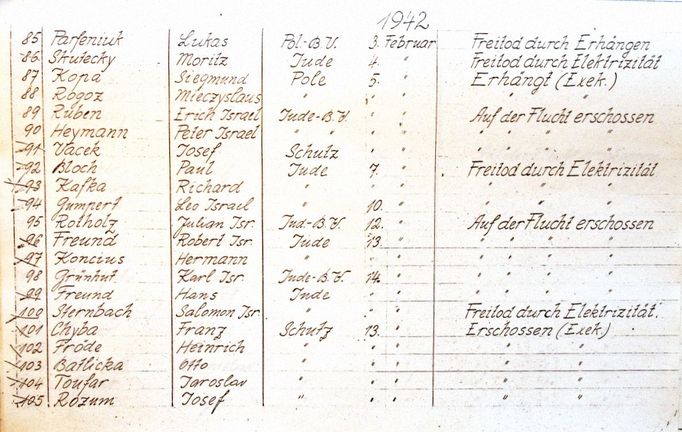 1942
85 Parfeniuk Lukas Pol.-B.V. 3. Februar Freitod durch Erhängen
86 Skutecky Moritz Jude 4. " Freitod durch Elektrizität
87 Kopa Siegmund Pole 5. " Erhängt (Exek.)
88 Rogoz Mieczyslaus " " " " "
89 Rüben Erich Israel Jude-B.V. " " Auf der Flucht erschossen
90 Heymann Peter Israel " " " " " " " "
91 Vacek Josef Schutz " " " " " "
92 Bloch Paul Jude 7. " Freitod durch Elektrizität
93 Kafka Richard " " " " " "
94 Gumpert Leo Israel " 10. " " " "
95 Rotholz Julian Isr. Jud.-B.V. 12. " Auf der Flucht erschossen
96 Freund Robert Isr. Jude 13. " " " " "
97 Koncius Hermann " " " " " " "
98 Grünhut Karl Isr. Jude-B.V. 14. " " " " "
99 Freund Hans Jude " " " " " "
100 Sternbach Salomon Isr. " " " Freitod durch Elektrizität.
101 Chyba Franz Schutz 13. " Erschossen (Exek.)
102 Frode Heinrich " " " " "
103 Batlicka Otto " " " " "
104 Toufar Jaroslav " " " " "
105 Rozum Josef " " " " "